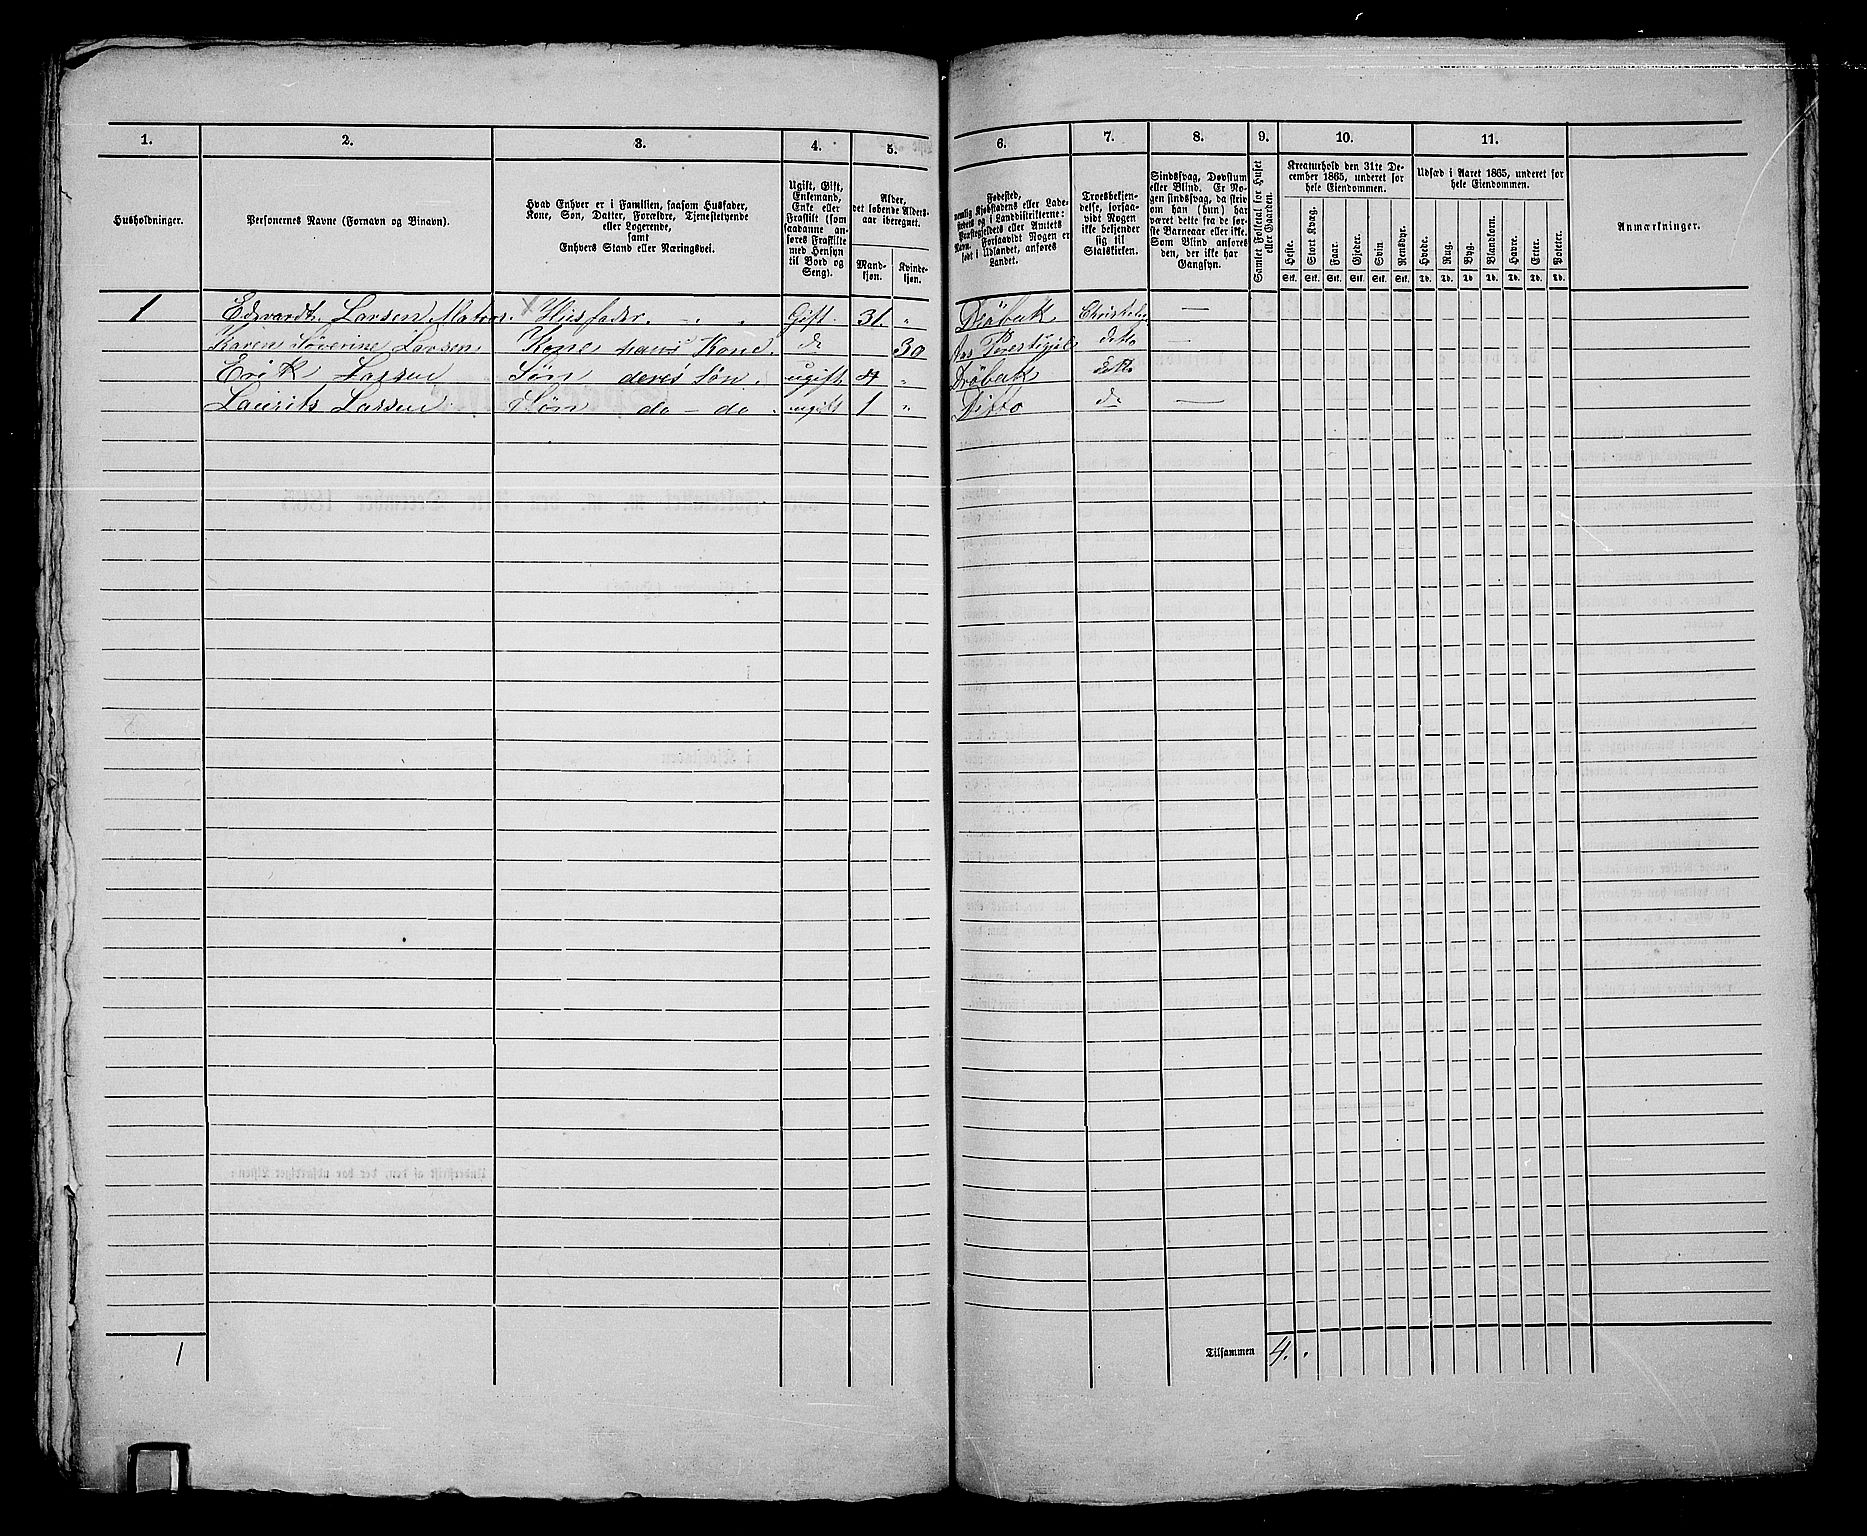 1. 2. 3. 4. 5. 6. 7. 8. 9. 10. 11.
Husholdninger.
Personernes Navne (Fornavn og Binavn).
Hvad Enhver er i Familien, saasom Husfader,
Kone, Søn, Datter, Forældre, Tjenestetyende
eller Logerende,
samt
Enhvers Stand eller Næringsvei.
Ugift, Gift,
Enkemand,
Enke eller
Fraskilt (som
saadanne an-
føres Fraskilte
med Hensyn
til Bord og
Seng).
Alder,
det løbende Alders-
aar iberegnet.
Mand-
kjøn.
Kvinde-
kjøn.
Fødested,
nemlig Kjøbstadens eller Lade-
stedets og i Landdistrikterne:
Præstegjeldets eller Amtets
Navn. Forsaavidt Nogen er
født i Udlandet, anføres
Landet.
Troesbekjen-
delse, forsaa-
vidt Nogen
ikke bekjender
sig til
Statskirken.
Sindssvag, Døvstum
eller Blind. Er No-
gen sindssvag, da skrives
om han (hun) har
været dette fra de før-
ste Barneaar eller ikke.
Som Blind anføres
den, der ikke har
Gangsyn.
Samlet Folketal for Huset
eller Gaarden.
Kreaturhold den 31te De-
cember 1865, underet for
hele Eiendommen.
Heste. Stort Kvæg. Faar. Gjeder. Svin Rensdyr.
Stk. Stk. Stk. Stk. Stk. Stk.
Udsæd i Aaret 1865, underet for
hele Eiendommen.
Hvede. Rug. Byg. Blandkorn. Havre. Erter. Poteter.
Td. Td. Td. Td. Td. Td. Td.
Anmærkninger.
1 Edvardt Larsen Matros. Husfader. Gift. 31. " Dröbak —
Karen Larsen Kone hans Kone. do 30 Aas detto —
Erik Larsen Søn deres Søn. ugift 4 " Dröbak detto
Laurits Larsen Søn do - do. ugift 1 " Ditto do —
1 Tilsammen 4.